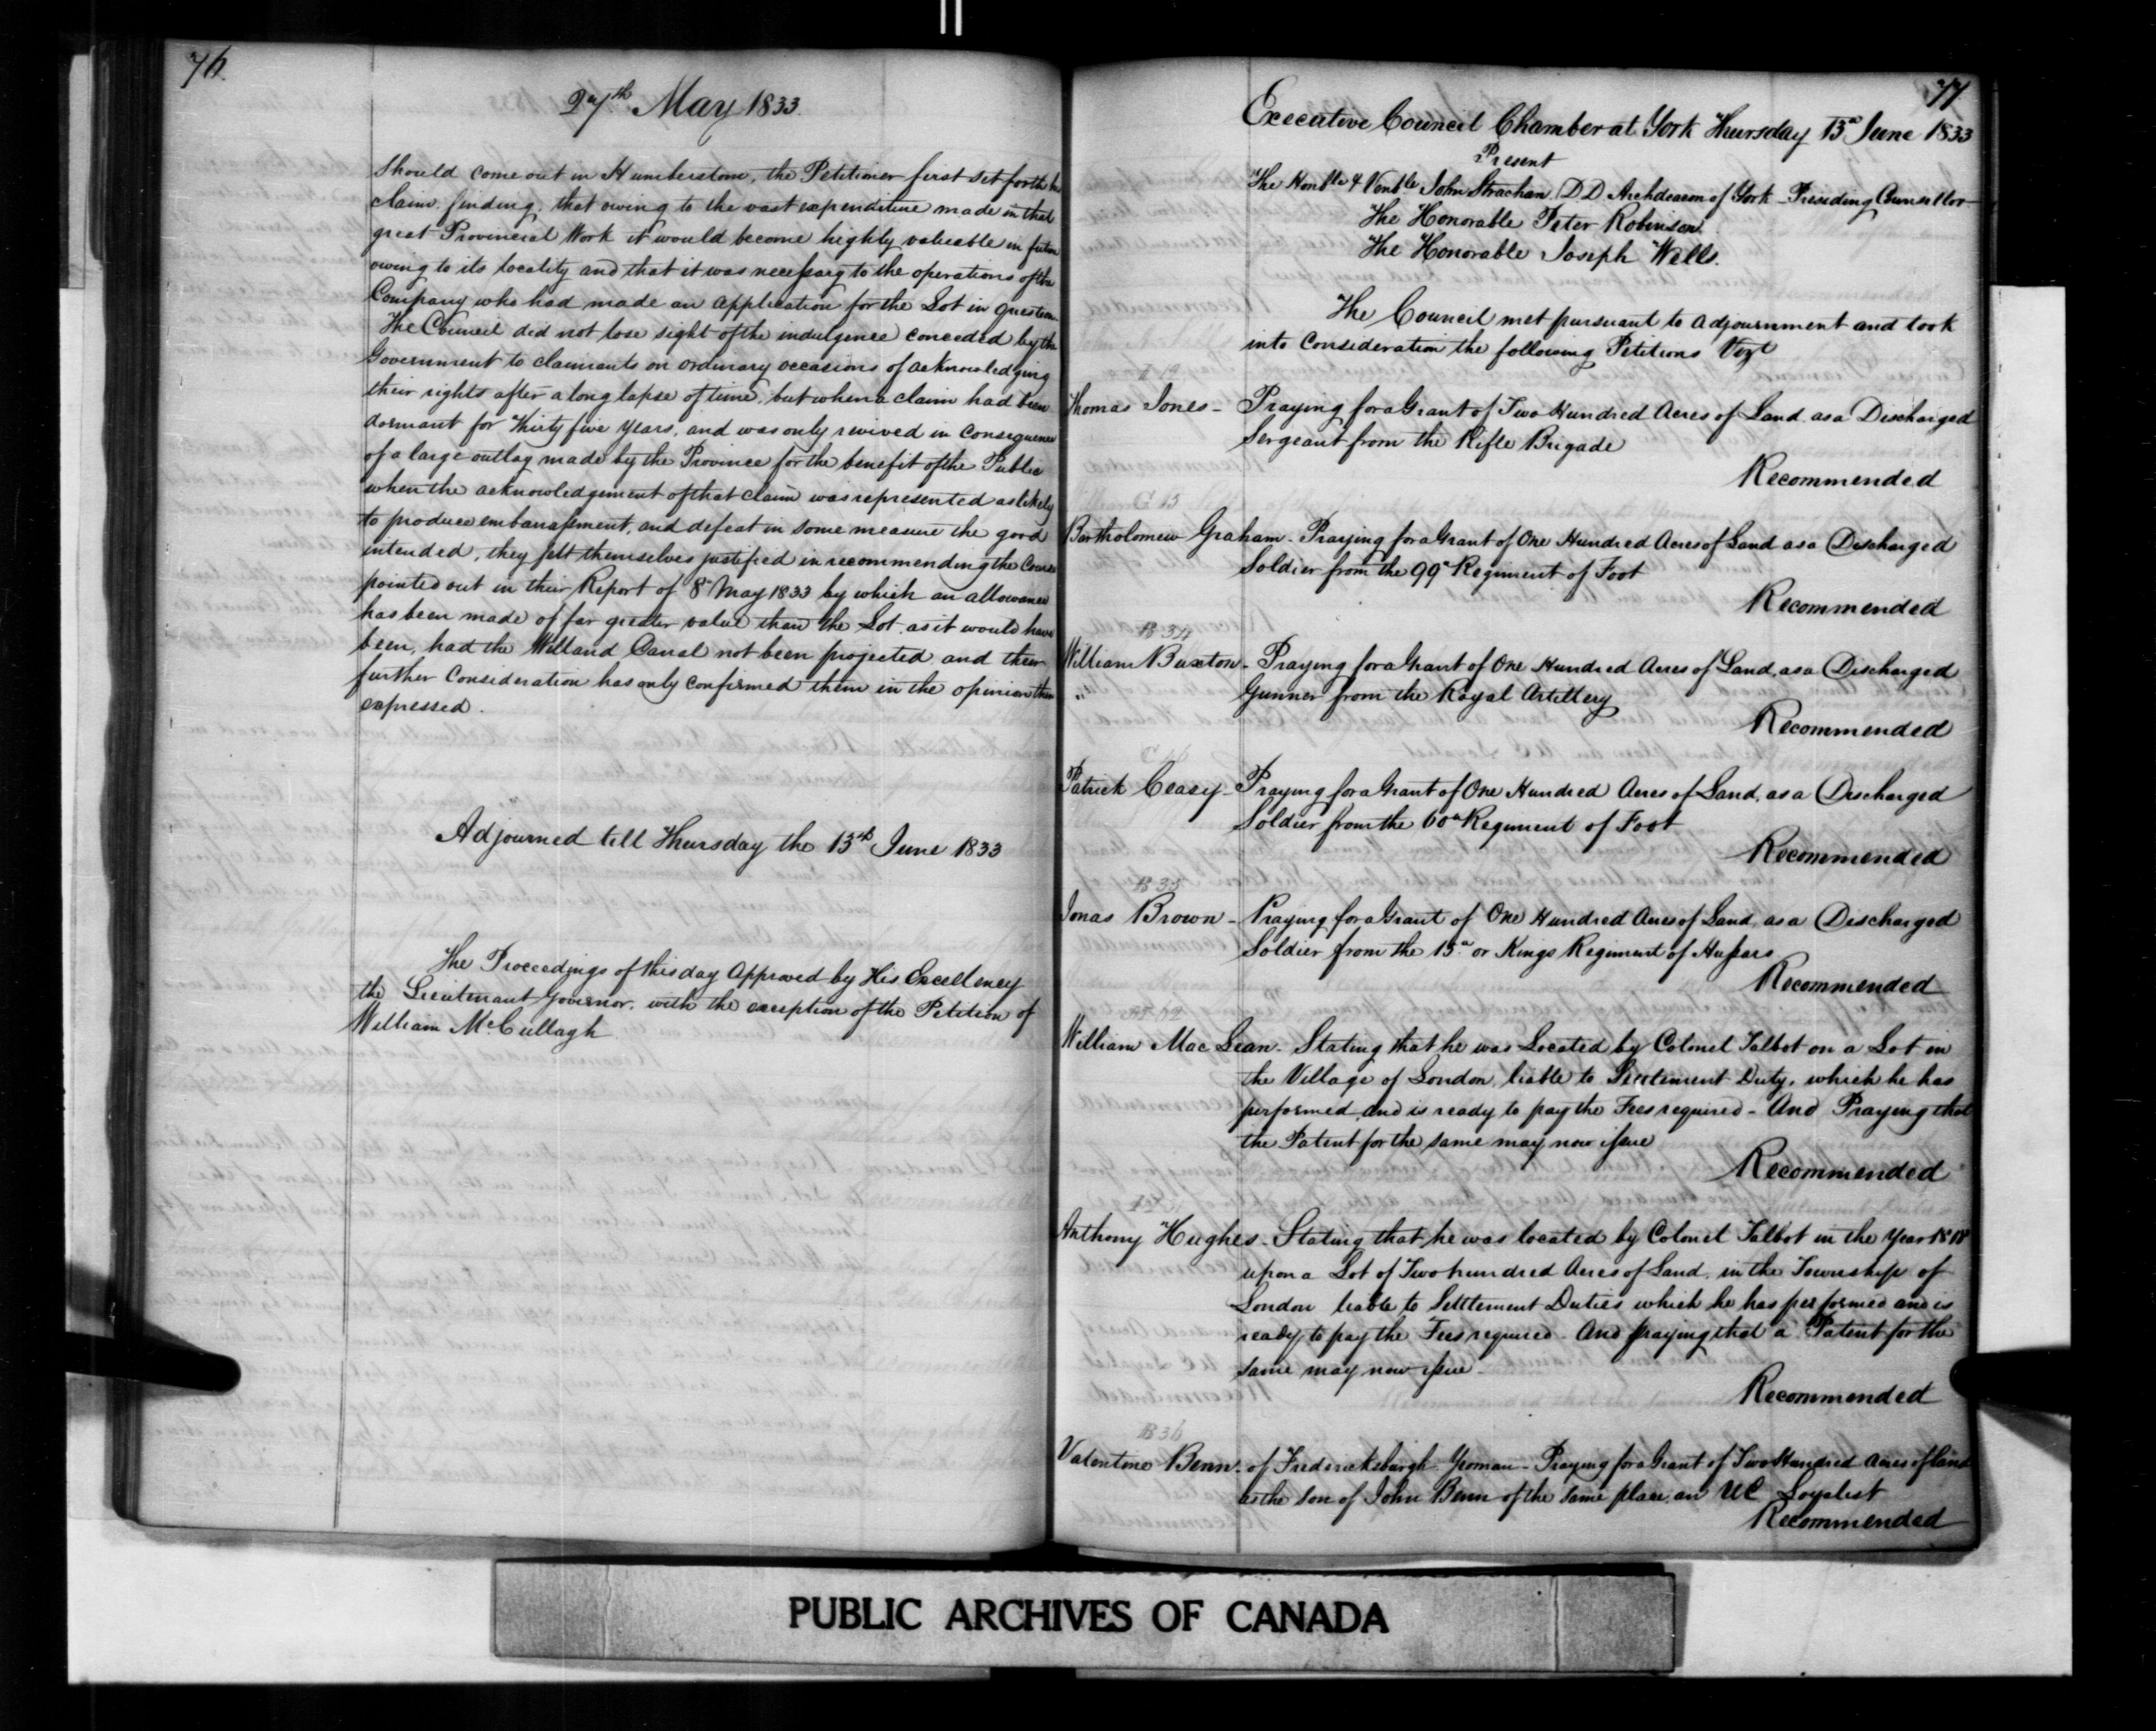 76.
27th May 1833.
should come out in Humberstone, the Petitioner first set forth his
claim, finding, that owing to the vast expenditure made in that
great Provincial Work it would become highly valuable in future
owing to its locality and that it was necessary to the operations of the
Company who had made an application for the Lot in question.
The Council did not lose sight of the indulgence conceded by the
Government to claimants on ordinary occasions of acknowledging
their rights after a long lapse of time, but when a claim had been
dormant for Thirty five Years, and was only revived in Consequence
of a large outlay made by the Province for the benefit of the Public
when the acknowledgement of that claim was represented as likely
to produce embarrassment, and defeat in some measure the good
intended, they felt themselves justified in recommending the Course
pointed out in their Report of 8th May 1833 by which an allowance
has been made of far greater value than the Lot, as it would have
been, had the Welland Canal not been projected and their
further Consideration has only confirmed them in the opinion then
expressed.
Adjourned till Thursday the 13th June 1833
The Proceedings of this day Approved by His Excellency
the Lieutenant Governor, with the exception of the Petition of
William McCullagh
77
Executive Council Chamber at York Thursday 13th June 1833
Present
The Honble & Venble John Strachan DD Archdeacon of York - Presiding Counsellor
The Honorable Peter Robinson.
The Honorable Joseph Wells.
The Council met pursuant to Adjournment and took
into Consideration the following Petitions Vizt
Thomas Jones - Praying for a Grant of Two Hundred Acres of Land as a Discharged
Sergeant from the Rifle Brigade
Recommended
G 13
Bartholomew Graham - Praying for a Grant of One Hundred Acres of Land as a Discharged
Soldier from the 99th Regiment of Foot
Recommended
B 34
William Buxton - Praying for a Grant of One Hundred Acres of Land, as a Discharged
Gunner from the Royal Artillery
Recommended
Patrick Ceasy - Praying for a Grant of One Hundred Acres of Land, as a Discharged
Soldier from the 60th Regiment of Foot
Recommended
B 35
Jonas Brown - Praying for a Grant of One Hundred Acres of Land, as a Discharged
Soldier from the 15th or Kings Regiment of Hussars
Recommended
William Mac Lean - Stating that he was Located by Colonel Talbot on a Lot in
the Village of London, liable to Settlement Duty, which he has
performed, and is ready to pay the Fees required - And Praying that
the Patent for the same may now issue
Recommended
Anthony Hughes - Stating that he was located by Colonel Talbot in the Year 1818
upon a Lot of Two hundred Acres of Land, in the Township of
London liable to Settlement Duties which he has performed and is
ready to pay the Fees required - And praying that a Patent for the
same may now issue -
Recommended
B 36
Valentine Benn - of Fredericksburgh Yeoman - Praying for a Grant of Two Hundred Acres of Land
as the Son of John Benn of the same place, an UE Loyalist
Recommended
PUBLIC ARCHIVES OF CANADA